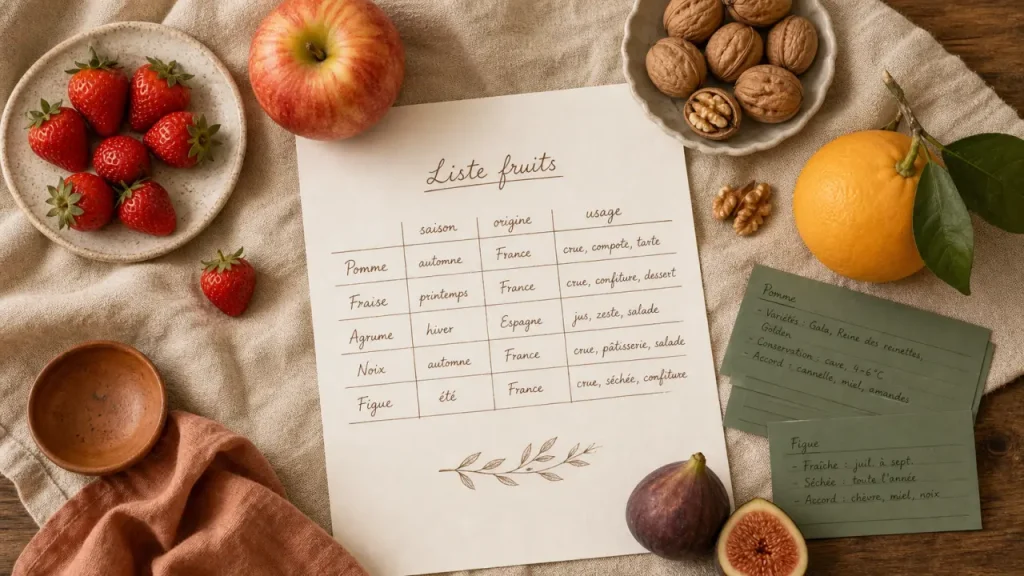 Liste fruits
saison origine usage
Pomme automne France crue, compote, tarte
Fraise printemps France crue, confiture, dessert
Agrume hiver Espagne jus, zeste, salade
Noix automne France crue, pâtisserie, salade
Figue été France crue, séchée, confiture
Pomme
- Variétés : Gala, Reine des reinettes,
Golden
- Conservation : cave, 4-6°C
- Accord : cannelle, miel, amandes
Figue
- Fraîche : juil. à sept.
- Séchée : toute l'année
- Accord : chèvre, miel, noix